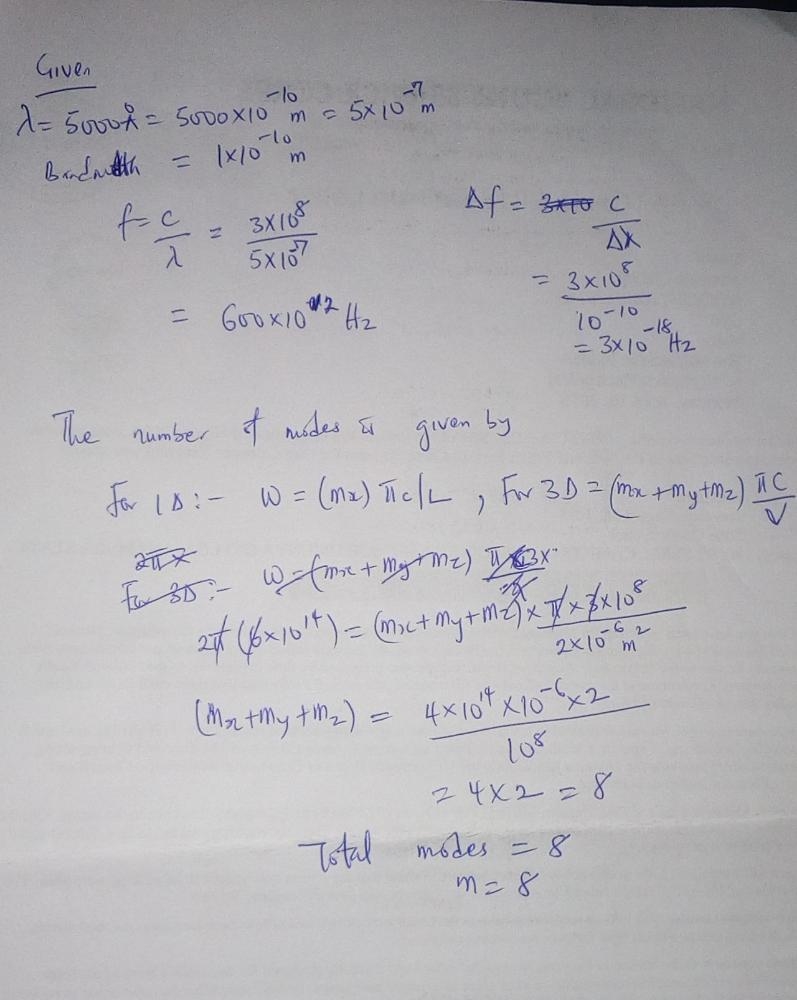 Given
λ = 5000Å = 5000×10^-10 m = 5×10^-7 m
Bandwidth = 1×10^-10 m
f = c/λ = 3×10^8 / 5×10^-7
= 600×10^12 Hz
Δf = c/Δλ
= 3×10^8 / 10^-10
= 3×10^-18 Hz
The number of modes is given by
For 1D :- ω = (mx) πc/L , For 3D = (mx + my + mz) πC/V
2π ×
For 3D :- ω = (mx + my + mz) π 3×
2π (6×10^14) = (mx + my + mz) × π × 3×10^8 / 2×10^-6 m^2
(mx + my + mz) = 4×10^14 × 10^-6 × 2 / 10^8
= 4 × 2 = 8
Total modes = 8
m = 8